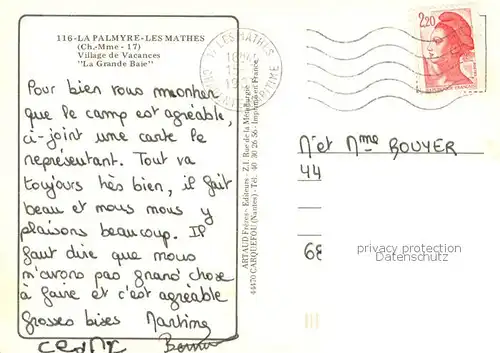 116-LA PALMYRE-LES MATHES
(Ch.-Mme - 17)
Village de Vacances
"La Grande Baie"
Pour bien vous montrer
que le camp est agréable,
ci-joint une carte le
représentant. Tout va
toujours très bien, il fait
beau et nous nous y
plaisons beaucoup. Il
faut dire que nous
n'avons pas grand chose
à faire et c'est agréable
Grosses bises Martine
Cedric
ARTAUD Frères - Editeurs - Z.I. Rue de la Métallurgie
44470 CARQUEFOU (Nantes) - Tél. 40 30 26 56 - Imprimé en France
17 LES MATHES
MARITIME
2,20
Mr et Mme BOUYER
44
68
privacy protection
Datenschutz